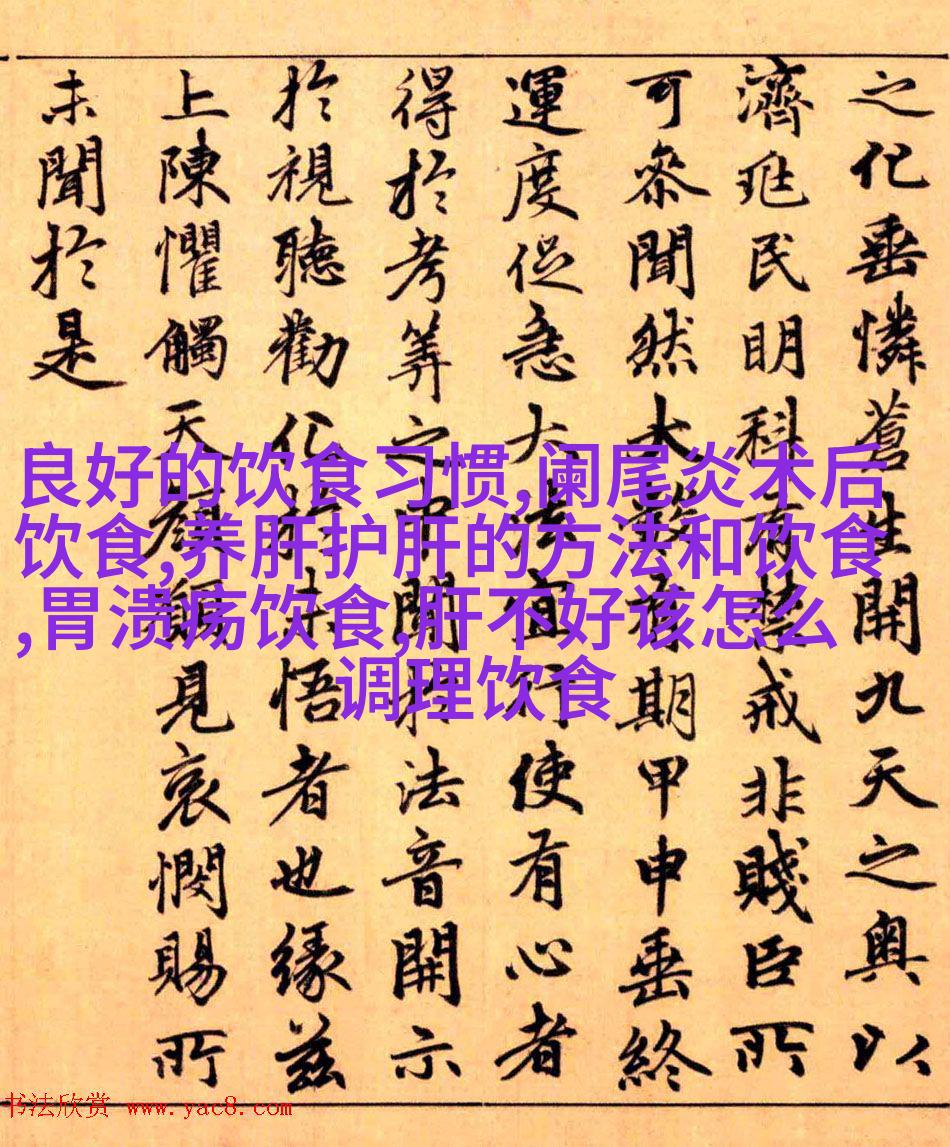 之化垂憐蒼生開九天之奧以
濟兆民明科有禁戒非賤臣所
可參聞然大難之期甲申垂終
運度促急大法宜行使有心者
得於考筭之中聞於法音開示
於視聽勸化於未悟者也緣茲
上陳懼觸天顏觸見哀憫賜所
未聞於是
良好的饮食习惯,阑尾炎术后
饮食,养肝护肝的方法和饮食
,胃溃疡饮食,肝不好该怎么
调理饮食
书法欣赏 www.yac8.com